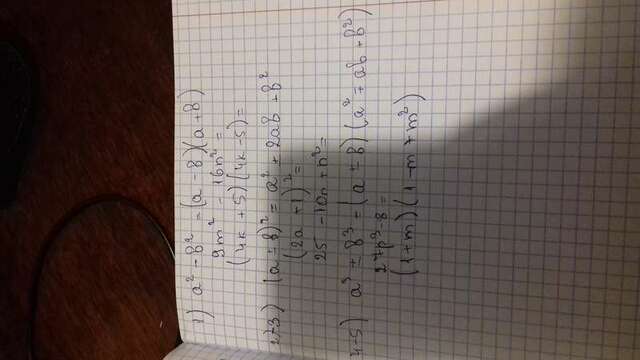 1) a² - b² = (a - b)(a + b)
9m² - 16n² =
(4k + 5)(4k - 5) =
2-3) (a ± b)² = a² ± 2ab + b²
(2a + 1)² =
25 - 10n + n² =
4-5) a³ ± b³ = (a ± b)(a² ∓ ab + b²)
27p³ - 8 =
(1 + m)(1 - m + m²)